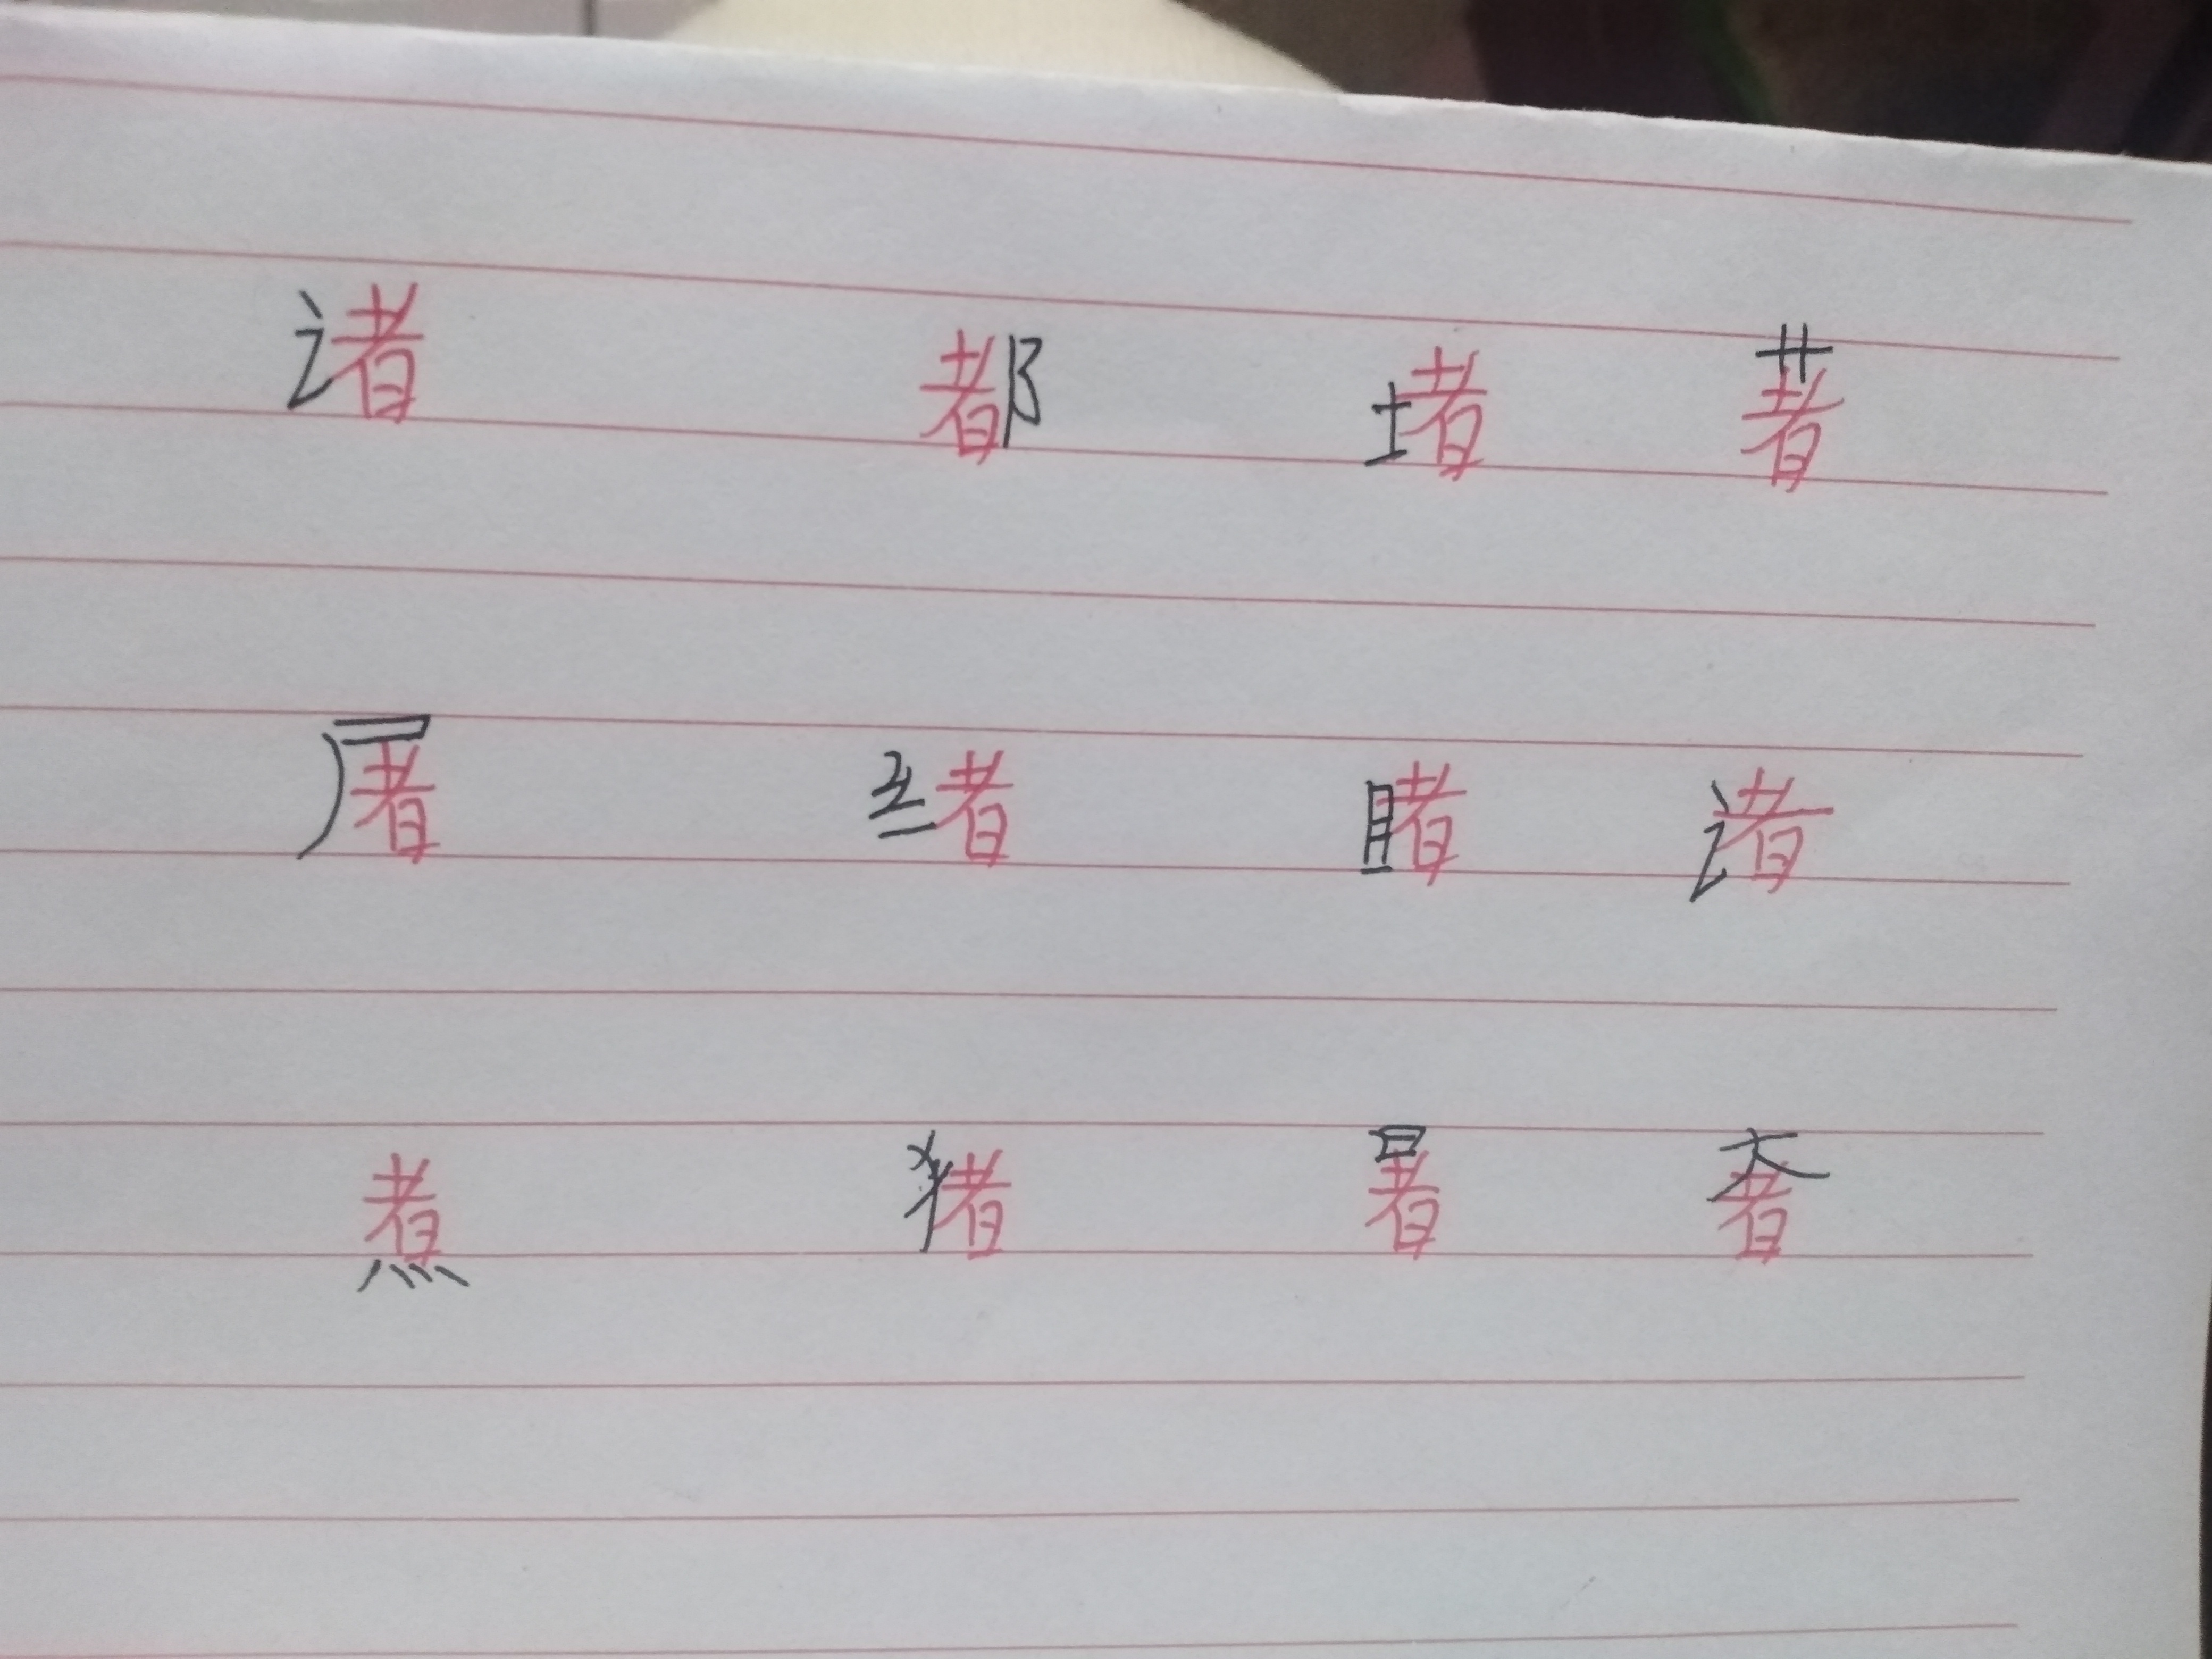 诸 都 堵 著
屠 绪 睹 诸
煮 猪 暑 奢